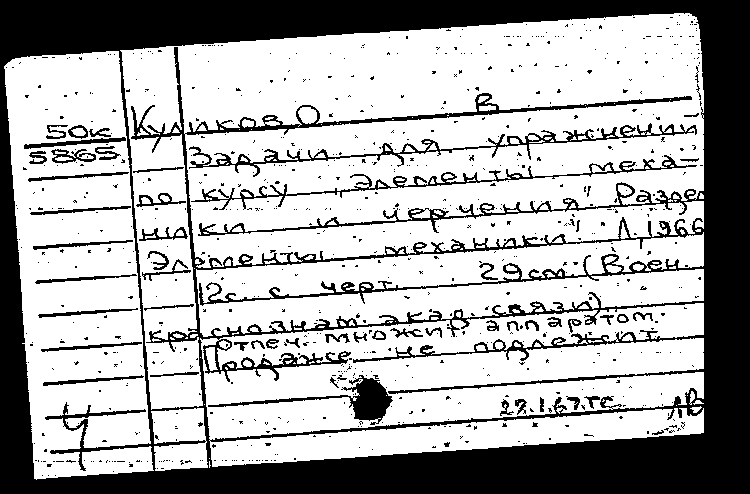 50к Куликов, О В
5865 Задачи для упражнений
по курсу „Элементы меха-
ники и черчения". Раздел
„Элементы механики". Л., 1966
12с. с черт. 29см. (Воен.
краснознам. акад. связи)
Отпеч. множит. аппаратом.
Продаже не подлежит.
Ч 27.1.67.ТС ЛВ